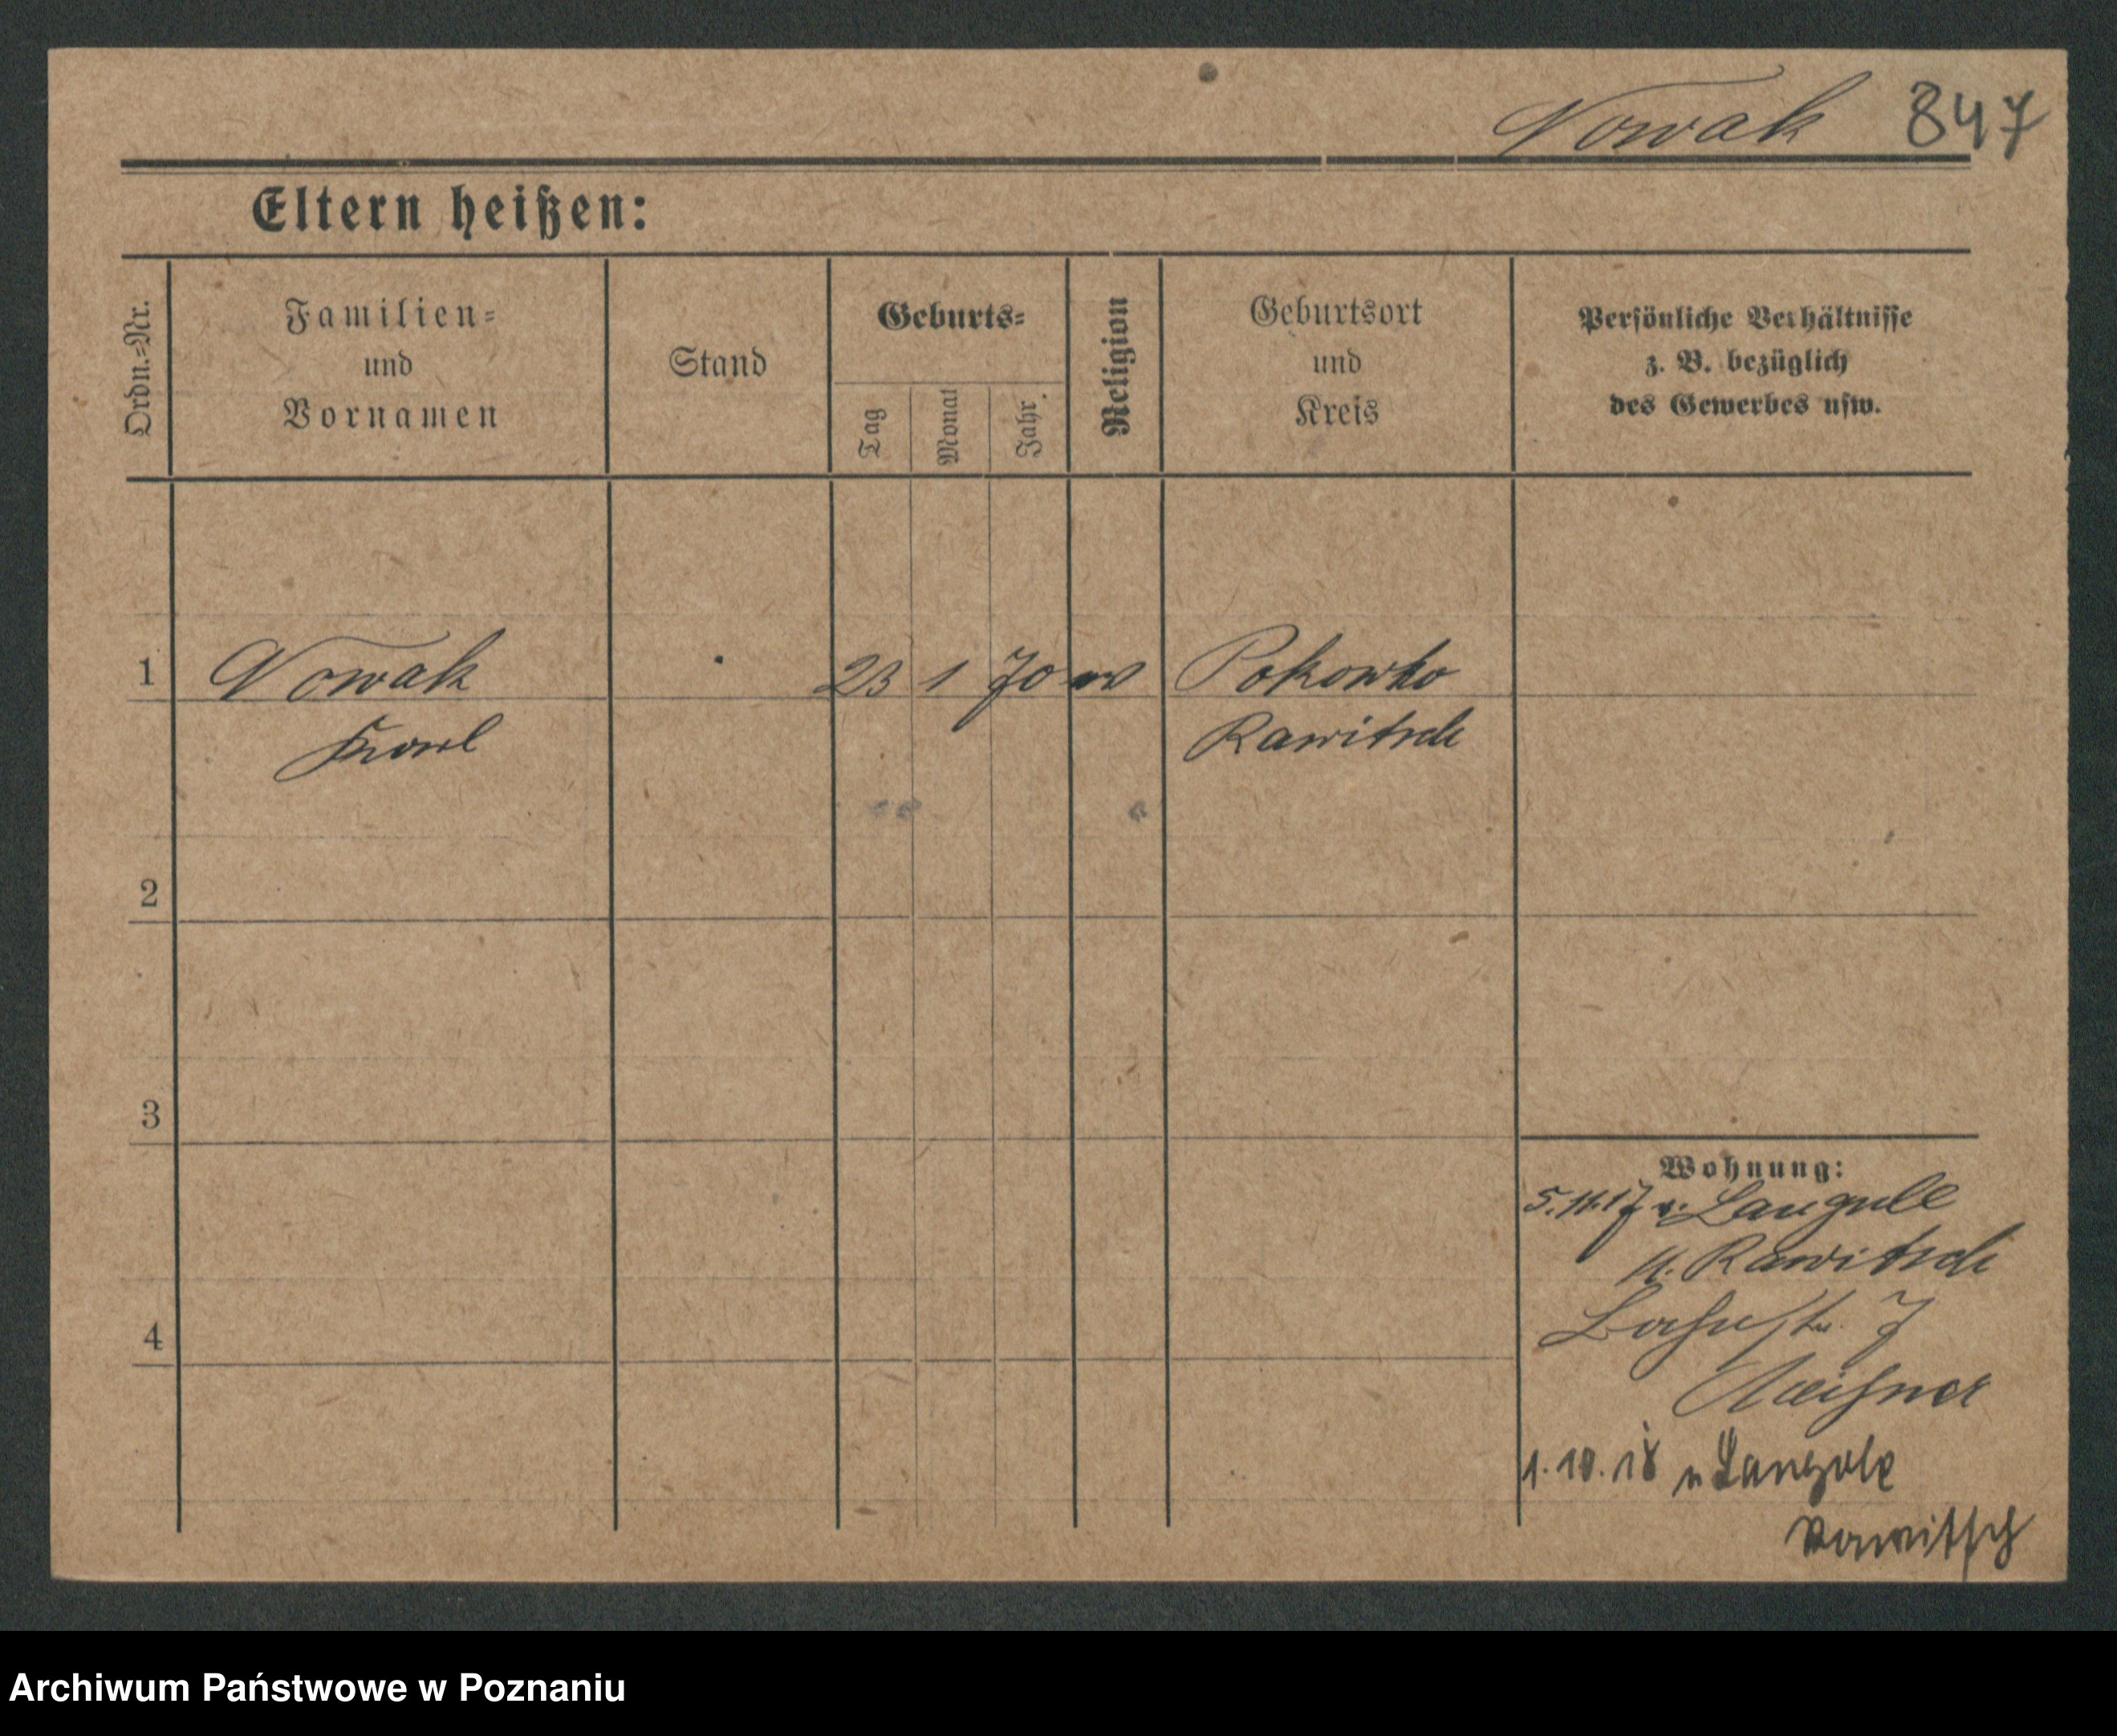 Nowak 847
Eltern heißen:
Ordn.=Nr.
Familien=
und
Vornamen
Stand
Geburts=
Tag
Monat
Jahr
Religion
Geburtsort
und
Kreis
Persönliche Verhältnisse
z. B. bezüglich
des Gewerbes usw.
1 Nowak 23 1 70 Pokowko
Karl Rawitsch
2
3
4
Wohnung:
5.11.17 v. Langule
K. Rawitsch
7
Meißner
1.10.18 n Langule
Rawitsch
Archiwum Państwowe w Poznaniu